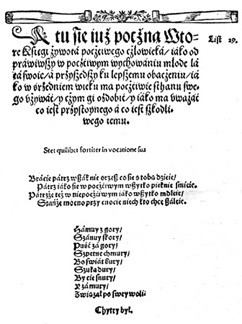 A tu sie iuż poczna Wto-
re Księgi żywota poczciwego człowieka/ iako od
prawiwszy w poczciwym wychowaniu młode la
ta swoie/ a przyszedszy ku lepszemu obaczeniu/ ia
ko w średniem wieku ma poczciwie sthanu swe
go vżywać/ y czym gi osdobić/ y iako ma vważać
co iest przystoynego a co iest szkodli
wego temu.
List 29.
Stet quilibet fortiter in vocatione sua
Bracie patrz wszak nie orzesz co sie s toba dzieie/
Patrz iako sie w poczciwym wszytko pieknie śmieie.
Patrzże też w niepoczciwym iako wszytko mdleie/
Stańże mocno przy cnocie niech kto chce szaleie.
Zamki z gory/
Szańuy skory/
Puść zá gory/
Szpetne chmury/
Bo świat bury/
Szuka dury/
By cie snury/
K zámury/
Zwiazal po swey woli
Chytry był.